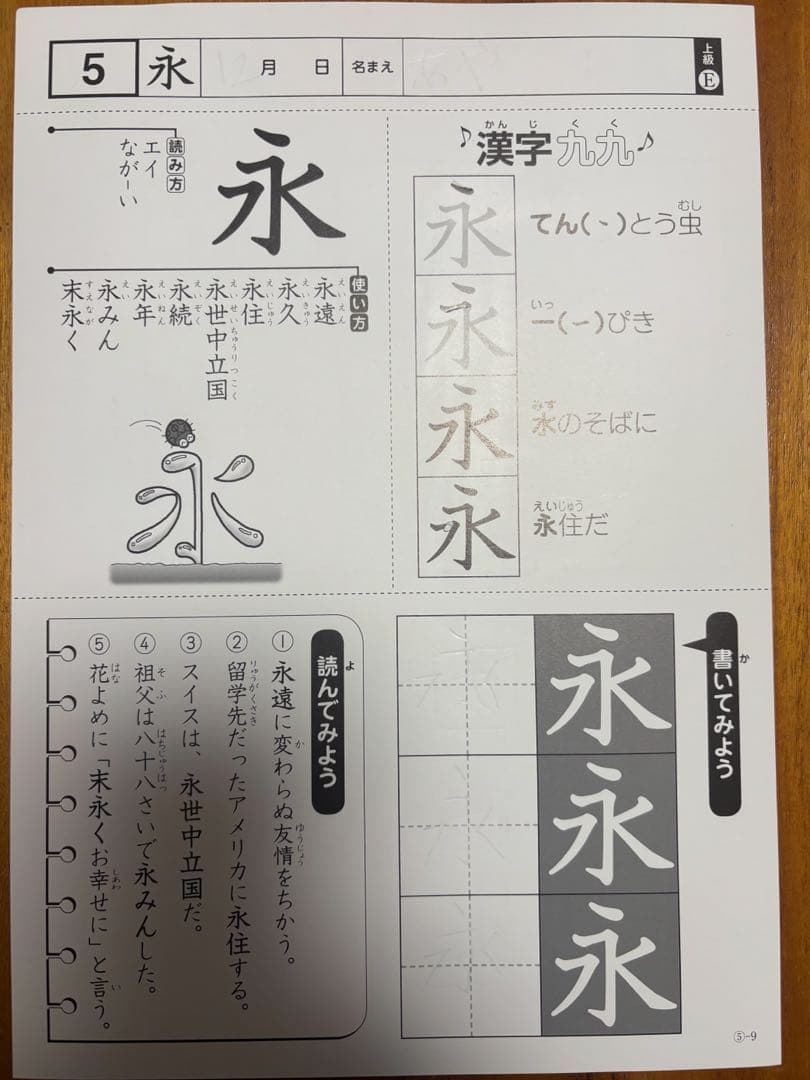 5 永 月 日 名まえ 上級 E
♪漢字九九♪
かんじくく
永 てん(丶)とう虫
むし
永 一(㇀)ぴき
いっ
永 水のそばに
みず
永 永住だ
えいじゅう
永
読み方
エイ
なが－い
使い方
永遠
えいえん
永久
えいきゅう
永住
えいじゅう
永世中立国
えいせいちゅうりつこく
永続
えいぞく
永年
えいねん
永みん
えい
末永く
すえなが
書いてみよう
か
永
永
永
読んでみよう
よ
① 永遠に変わらぬ友情をちかう。
か ゆうじょう
② 留学先だったアメリカに永住する。
りゅうがくさき
③ スイスは、永世中立国だ。
④ 祖父は八十八さいで永みんした。
そふ はちじゅうはっ
⑤ 花よめに「末永くお幸せに」と言う。
はな しあわ い
⑤-9